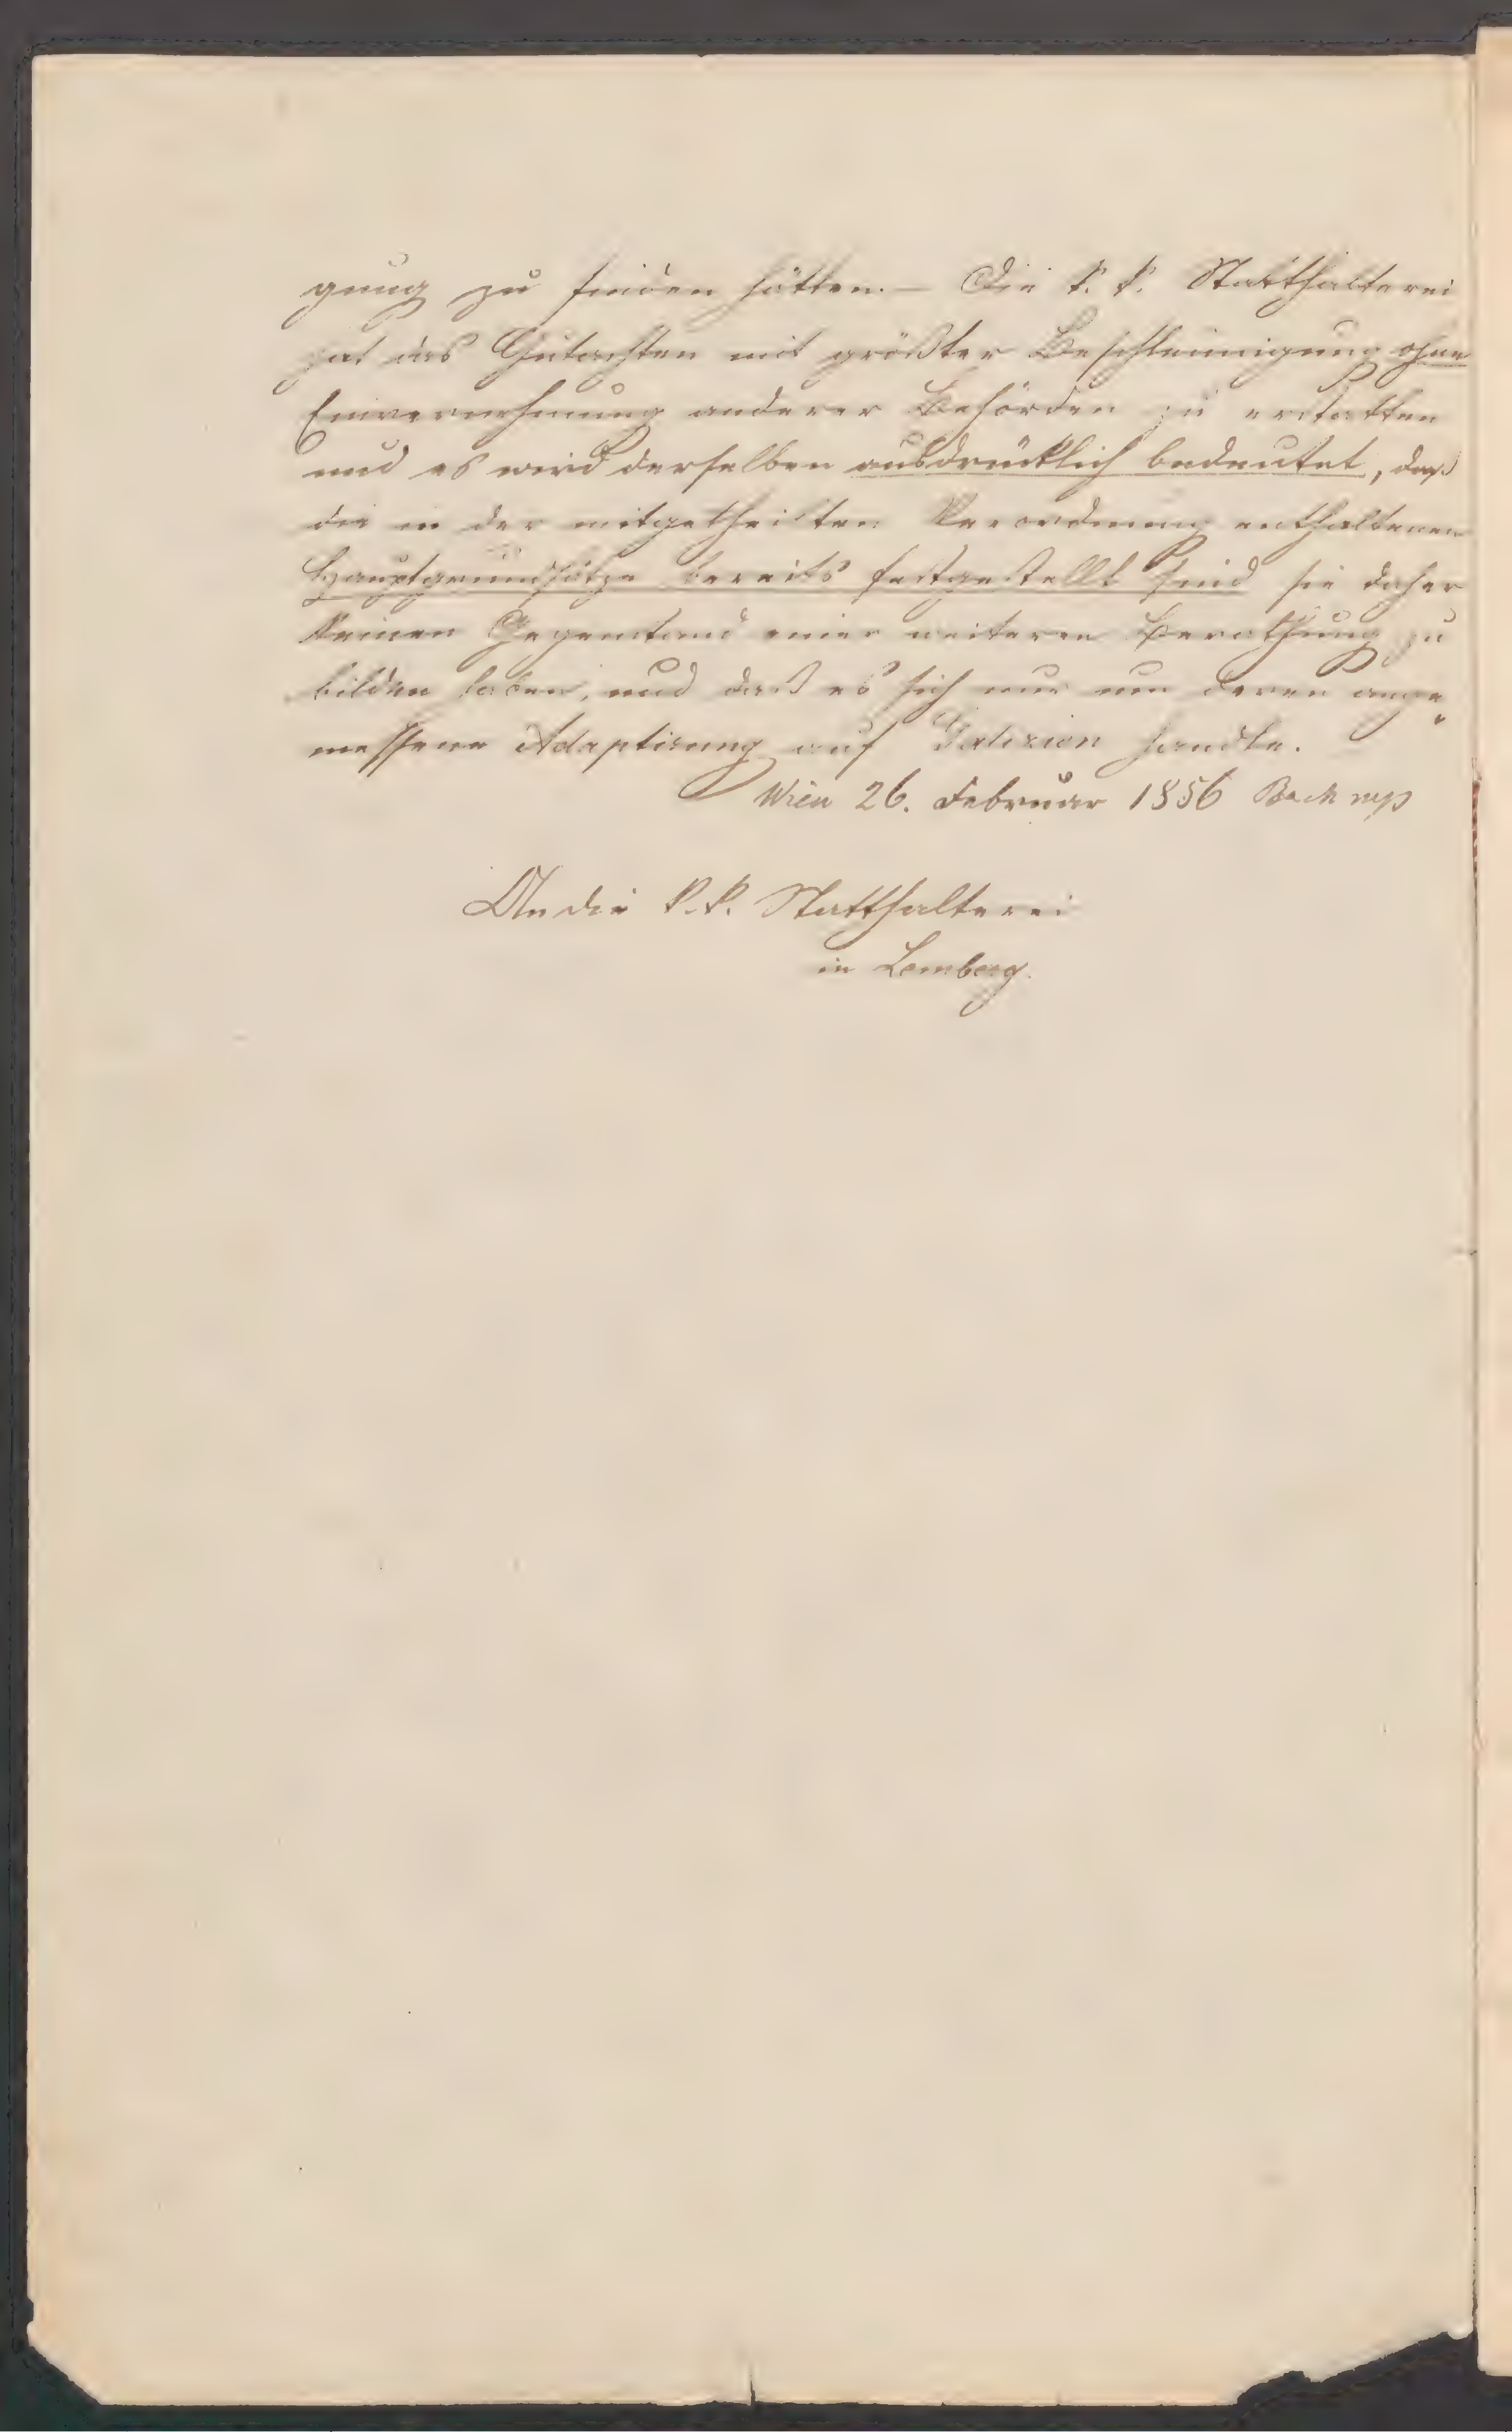 gung zu finden hätten. — Die k. k. Statthalterei
hat das Gutachten mit größter Beschleunigung ohne
Einvernehmung anderer Behörden zu erstatten
und es wird derselben ausdrücklich bedeutet, daß
die in der mitgetheilten Verordnung enthaltenen
Hauptgrundsätze bereits festgestellt sind sie daher
keinen Gegenstand einer weiteren Berathung zu
bilden haben, und daß es sich nur um deren ange
messene Adaptirung auf Galizien handle.
Wien 26. Februar 1856 Bach mp
An die k. k. Statthalterei
in Lemberg.